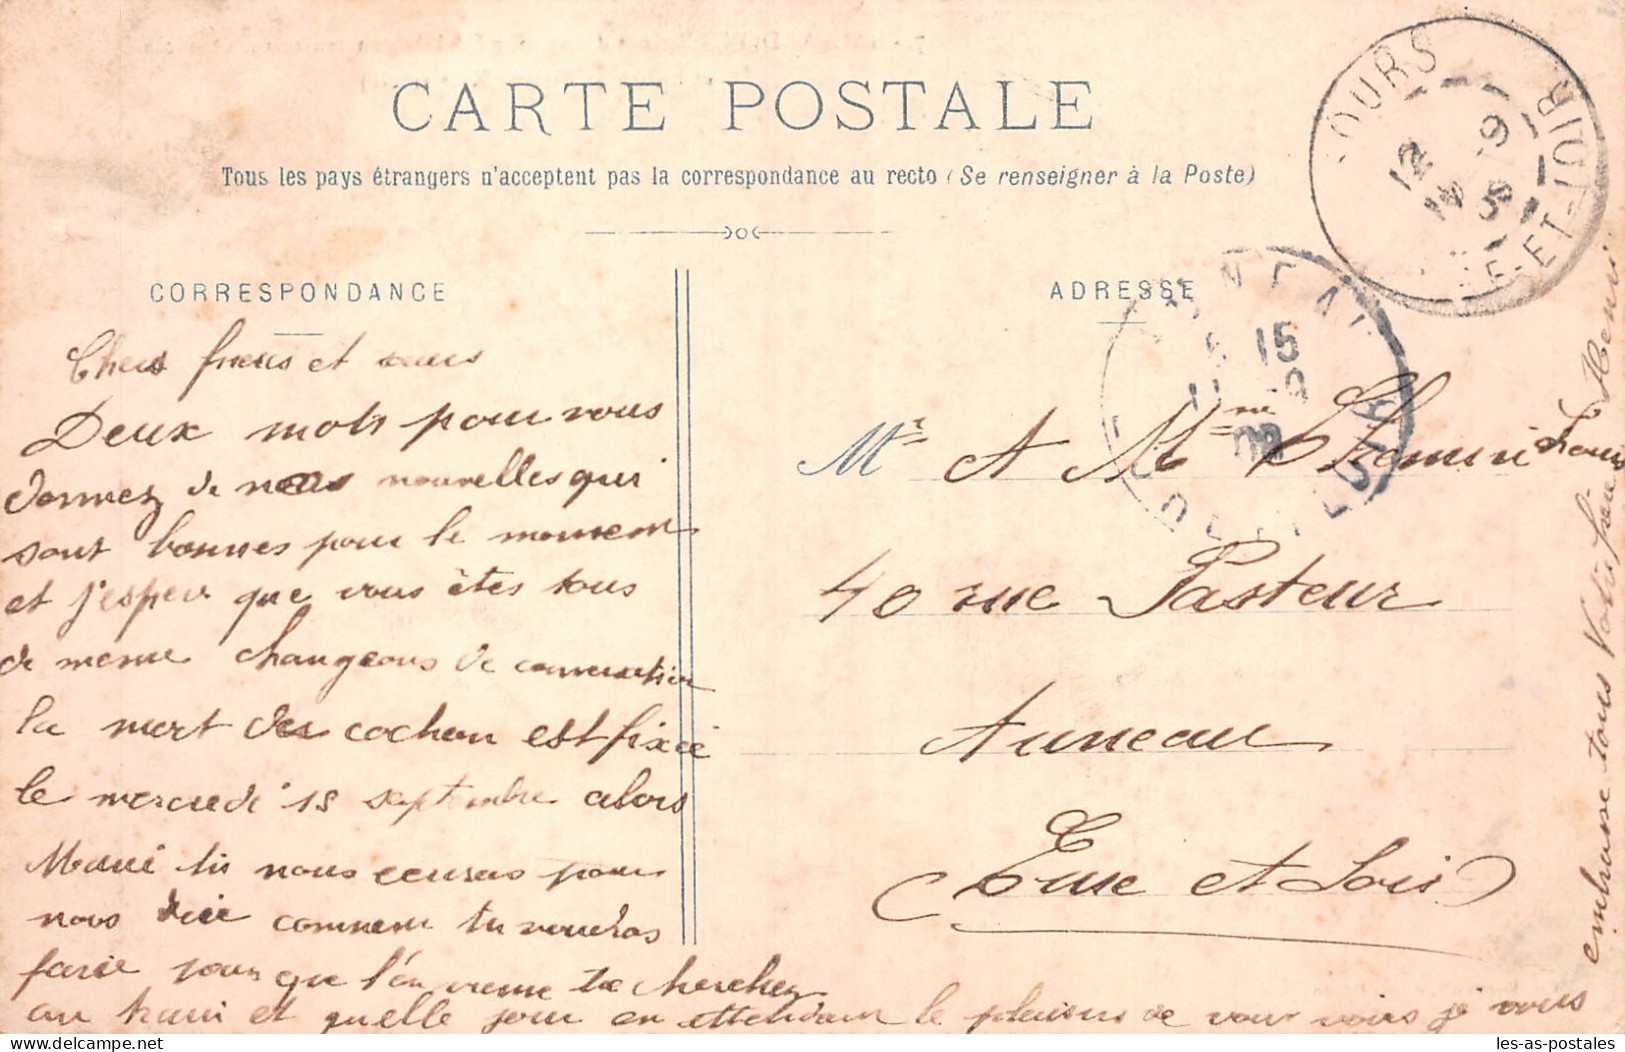 CARTE POSTALE
Tous les pays étrangers n'acceptent pas la correspondance au recto (Se renseigner à la Poste)
CORRESPONDANCE
ADRESSE
OURS
E-ET-LOIR
12
-9
15
Chers freres et
Deux mots pour vous
donnez de nous nouvelles qui
sont bonnes pour le momen
et j'espere que vous êtes tous
de meme changeons de conversation
la mort du cochon est fixée
le mercredi 18 septembre alors
nous pour
nous dire comment tu voudras
faire pour que l'on vienne te cherchez
au train et quelle jour en attendan le plaisir de vous voirs je vous
embrasse tous Votre frère Henri
Mr A Mme
40 rue Pasteur
Auneau
Eure et Loir
les-as-postales